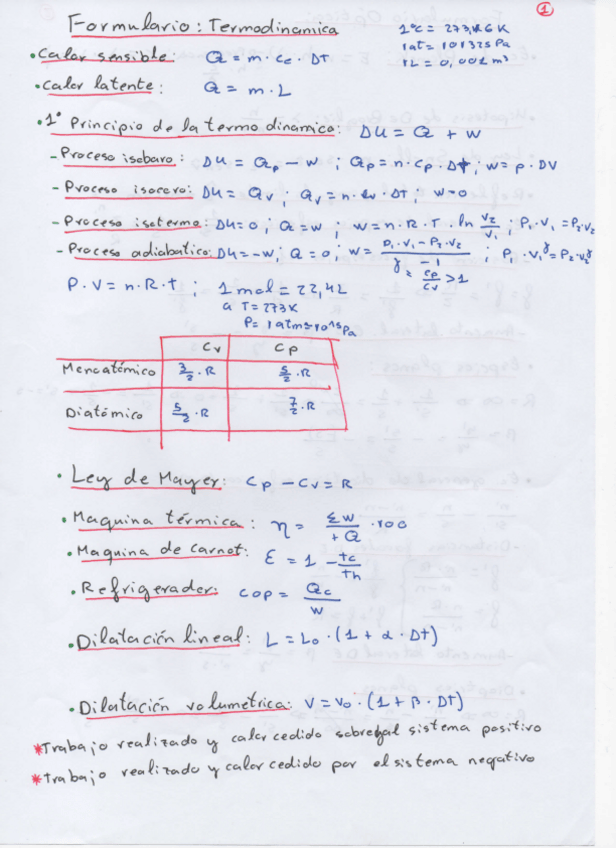 1
Formulario: Termodinamica
1ºc = 273,16 K
1at = 101325 Pa
1L = 0,001 m³
• Calor sensible: Q = m · ce · ΔT
• Calor latente: Q = m · L
• 1º Principio de la termodinamica: Δu = Q + w
- Proceso isobaro: Δu = Qp - w ; Qp = n · cp · Δt ; w = p · DV
- Proceso isocoro: Δu = Qv ; Qv = n · cv · ΔT ; w = 0
- Proceso isotermo: Δu = 0 ; Q = w ; w = n · R · T · ln V2/V1 ; P1 · V1 = P2 · V2
- Proceso adiabatico: Δu = -w ; Q = 0 ; w = P1 · V1 - P2 · V2 / γ - 1 ; P1 · V1^γ = P2 · V2^γ
γ = cp/cv > 1
P · V = n · R · t ; 1 mol = 22,4L
a T = 273K
P = 1 atm = 10^5 Pa
Cv Cp
Monoatómico 3/2 · R 5/2 · R
Diatómico 5/2 · R 7/2 · R
• Ley de Mayer: Cp - Cv = R
• Maquina térmica: η = Σw / +Q · 100
• Maquina de carnot: ε = 1 - tc/th
• Refrigerador: COP = Qc/w
• Dilatación lineal: L = Lo · (1 + α · Δt)
• Dilatación volumetrica: V = Vo · (1 + β · Δt)
*Trabajo realizado y calor cedido sobre al sistema positivo
*trabajo realizado y calor cedido por el sistema negativo